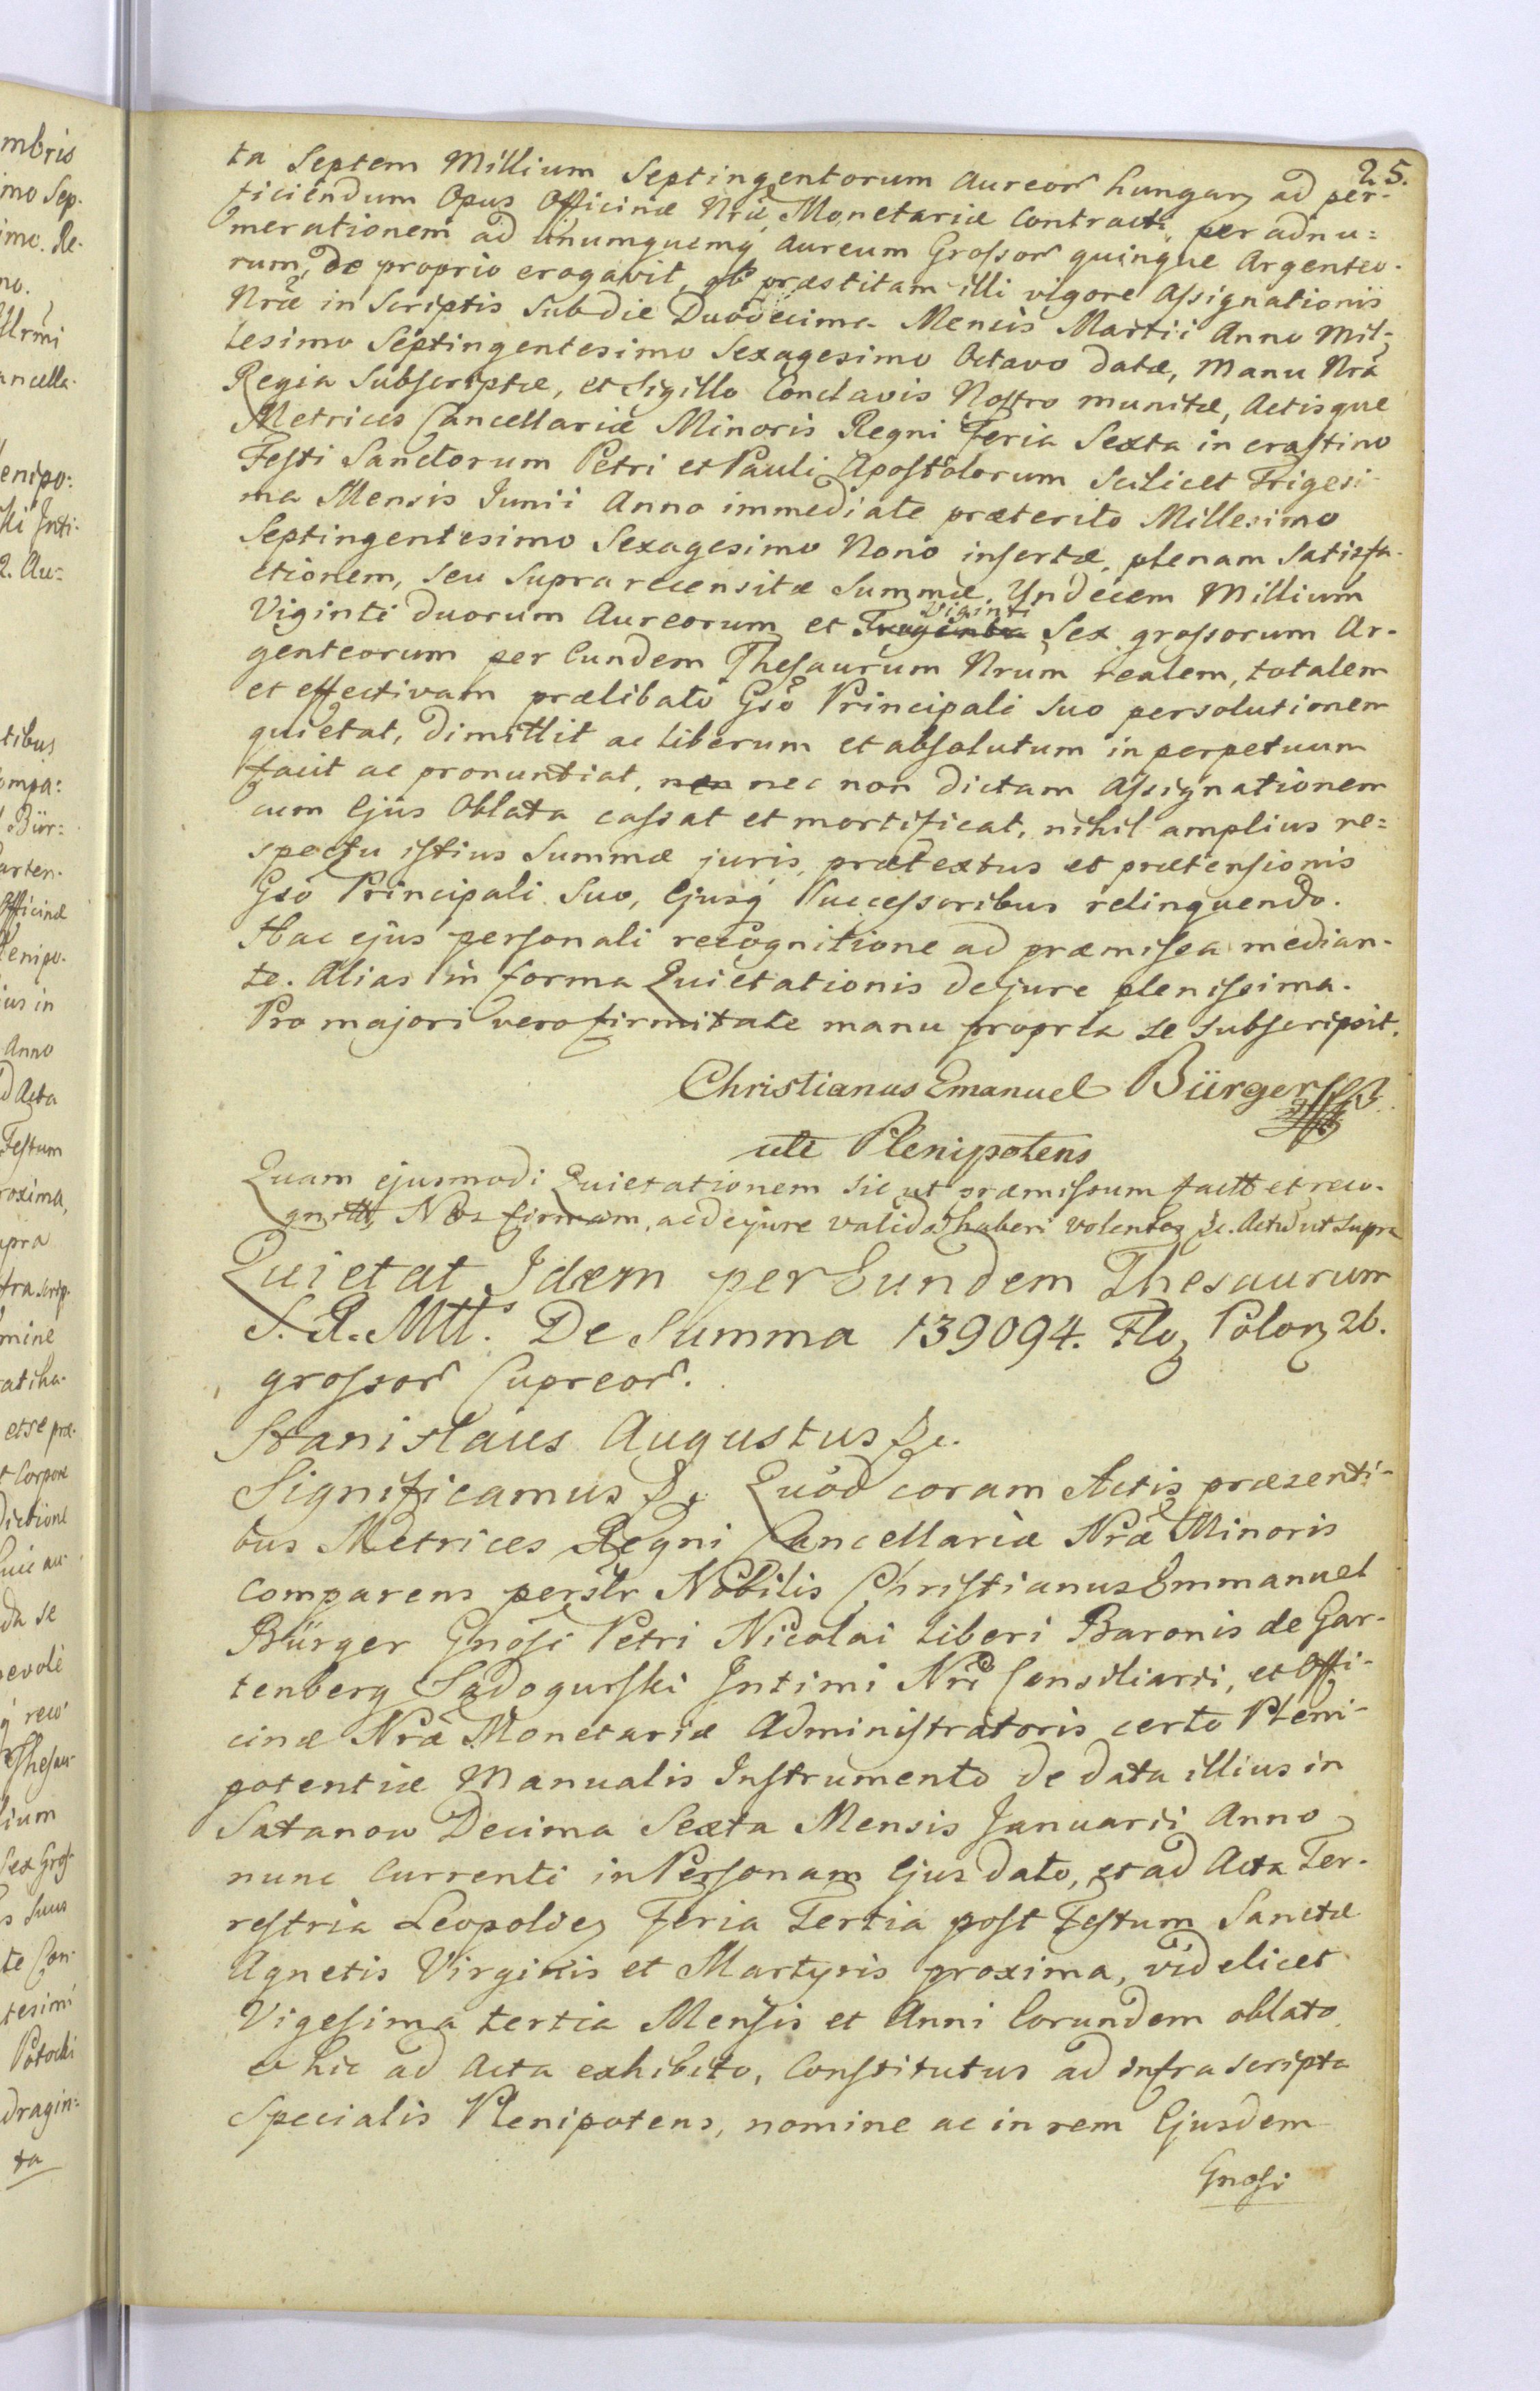 25.
ta Septem Millium Septingentorum Aureor Hungarz ad per-
ficiendum Opus Officinæ Nræ Monetariæ Contracti, per adnu:
merationem ad unumquemq Aureum Grossor quinque Argenteo-
rum, de proprio erogavit, ob præstitam illi vigore Assignationis
Nræ in Scriptis Sub die Duodecima Mensis Martii Anno Mil-
lesimo Septingentesimo Sexagesimo Octavo datæ, Manu Nra
Regia Subscriptæ, et Sigillo Conclavis Nostro munitæ, Actisque
Metrices Cancellariæ Minoris Regni Feria Sexta in crastino
Festi Sanctorum Petri et Pauli Apostolorum Scilicet Trigesi-
ma Mensis Junii Anno immediate præterito Millesimo
Septingentesimo Sexagesimo Nono insertæ, plenam Satisfa-
ctionem, seu Supra recensitæ Summæ, Undecem Millium
Viginti duorum Aureorum et Viginti Sex grossorum Ar-
genteorum per Eundem Thesaurum Nrum realem, totalem
et effectivam prælibato Gso Principali Suo persolutionem
quietat, dimittit ac liberum et absolutum in perpetuum
facit ac pronuntiat, nec non dictam Assignationem
cum Ejus Oblata cassat et mortificat, nihil amplius re=
spectu istius Summæ juris, prætextus et prætensionis
Gso Principali Suo, Ejusq Successoribus relinquendo.
Hac ejus personali recognitione ad præmissa median-
te. Alias in forma Quietationis de jure plenissima.
Pro majori vero firmitate manu propria se subscripsit.
Christianus Emanuel Bürger
uti Plenipotens
Quam ejusmodi Quietationem sic ut præmissum factt et reco-
gnitt, Nos firmam, ac de jure valida haberi volentes &c. Actu ut Supra
Quietat Idem per Eundem Thesaurum
S. R. Mtt. De Summa 139094. Floz Polonz 26.
grossor Cupreor.
Stanislaus Augustus &c.
Significamus &c. Quod coram Actis præsenti-
bus Metrices Regni Cancellariæ Nræ Minoris
Comparens persltr Nobilis Christianus Emmanuel
Bürger Gnosi Petri Nicolai Liberi Baronis de Gar-
tenberg Sadogurski Intimi Nri Consiliarii, et Offi-
cinæ Nræ Monetariæ Administratoris certo Pleni-
potentiæ Manualis Instrumento de data illius in
Satanow Decima Sexta Mensis Januarii Anno
nunc Currenti in Personam Ejus dato, et ad Acta Ter-
restria Leopoliez Feria Tertia post Festum Sanctæ
Agnetis Virginis et Martyris proxima, videlicet
Vigesima tertia Mensis et Anni Eorundem oblato
et hic ad Acta exhibito, Constitutus ad infra scripta
Specialis Plenipotens, nomine ac in rem Ejusdem
Gnosi